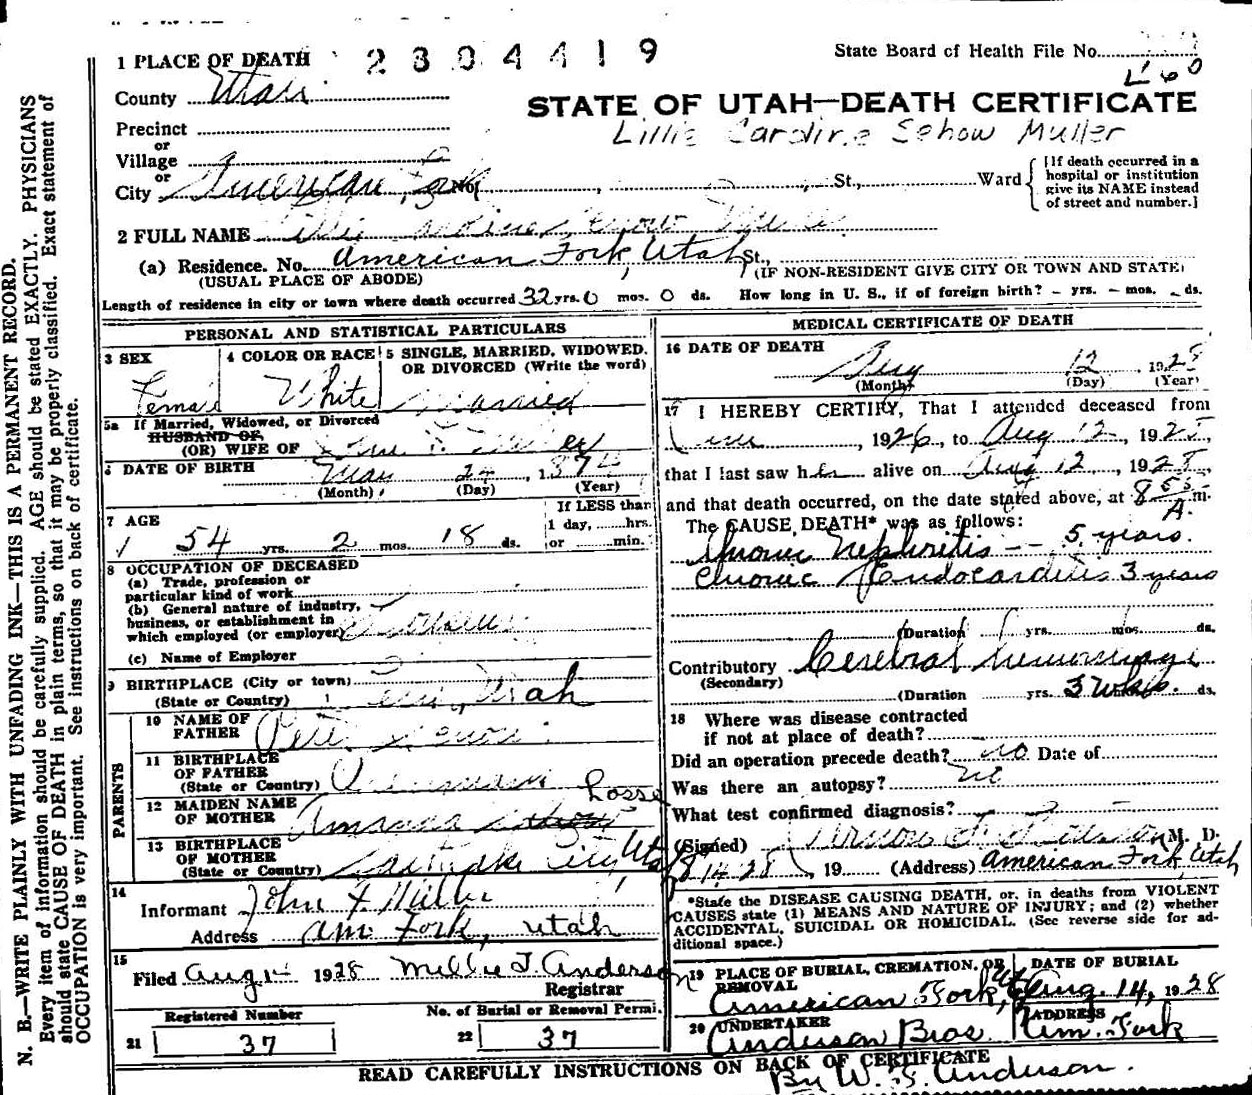 1 PLACE OF DEATH 2304419 State Board of Health File No.
County Utah
STATE OF UTAH—DEATH CERTIFICATE
Precinct
Lillie Caroline Schow Muller
or
Village
or
City American Fork No. St., Ward
[If death occurred in a
hospital or institution
give its NAME instead
of street and number.]
2 FULL NAME Lillie
(a) Residence. No. American Fork, Utah St.,
(USUAL PLACE OF ABODE) (IF NON-RESIDENT GIVE CITY OR TOWN AND STATE)
Length of residence in city or town where death occurred 32 yrs. 0 mos. 0 ds. How long in U. S., if of foreign birth? - yrs. - mos. - ds.
PERSONAL AND STATISTICAL PARTICULARS
3 SEX 4 COLOR OR RACE 5 SINGLE, MARRIED, WIDOWED,
OR DIVORCED (Write the word)
Female White Married
5a If Married, Widowed, or Divorced
HUSBAND OF
(OR) WIFE OF
6 DATE OF BIRTH May 24, 1874
(Month) (Day) (Year)
7 AGE If LESS than
1 day, hrs.
54 yrs. 2 mos. 18 ds. or min.
8 OCCUPATION OF DECEASED
(a) Trade, profession or
particular kind of work
(b) General nature of industry,
business, or establishment in
which employed (or employer)
(c) Name of Employer
9 BIRTHPLACE (City or town)
(State or Country) Utah
PARENTS
10 NAME OF
FATHER Peter
11 BIRTHPLACE
OF FATHER
(State or Country)
12 MAIDEN NAME
OF MOTHER Amanda Losse
13 BIRTHPLACE
OF MOTHER
(State or Country) Salt Lake City, Utah
14
Informant John F Miller
Address Am. Fork, Utah
15
Filed Aug 14 1928 Millie T. Anderson
Registrar
Registered Number No. of Burial or Removal Permit
21 37 22 37
MEDICAL CERTIFICATE OF DEATH
16 DATE OF DEATH
Aug 12, 1928
(Month) (Day) (Year)
17 I HEREBY CERTIFY, That I attended deceased from
1926, to Aug 12, 1928,
that I last saw her alive on Aug 12, 1928,
and that death occurred, on the date stated above, at 8 55 A. m.
The CAUSE DEATH* was as follows:
Chronic Nephritis -- 5 years.
Chronic Endocarditis 3 years
(Duration yrs. mos. ds.
Contributory Cerebral hemorrhage
(Secondary)
(Duration yrs. 3 wks. ds.
18 Where was disease contracted
if not at place of death?
Did an operation precede death? no Date of
Was there an autopsy? no
What test confirmed diagnosis?
(Signed) M. D.
8/14/28, 19 (Address) American Fork, Utah
*State the DISEASE CAUSING DEATH, or, in deaths from VIOLENT
CAUSES state (1) MEANS AND NATURE OF INJURY; and (2) whether
ACCIDENTAL, SUICIDAL OR HOMICIDAL. (See reverse side for ad-
ditional space.)
19 PLACE OF BURIAL, CREMATION, OR
REMOVAL
American Fork,
DATE OF BURIAL
Aug. 14, 1928
20 UNDERTAKER
Anderson Bros.
ADDRESS
Am. Fork
READ CAREFULLY INSTRUCTIONS ON BACK OF CERTIFICATE
By W. S. Anderson.
N. B.—WRITE PLAINLY WITH UNFADING INK—THIS IS A PERMANENT RECORD.
Every item of information should be carefully supplied. AGE should be stated EXACTLY. PHYSICIANS
should state CAUSE OF DEATH in plain terms, so that it may be properly classified. Exact statement of
OCCUPATION is very important. See instructions on back of certificate.